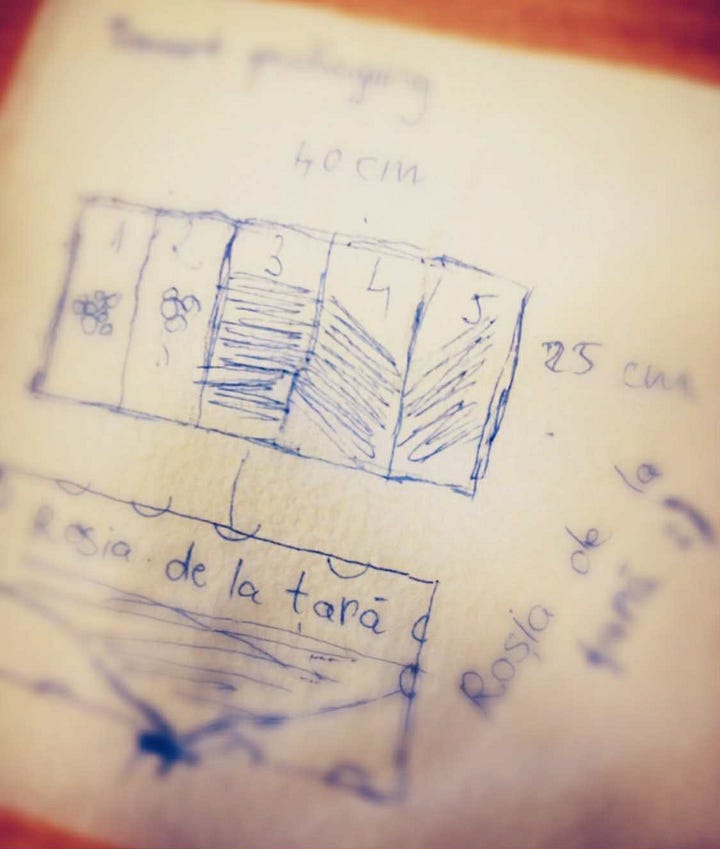 packaging
40 cm
1 2 3 4 5
25 cm
Rosia de la țară
Roșia de la
țară :)